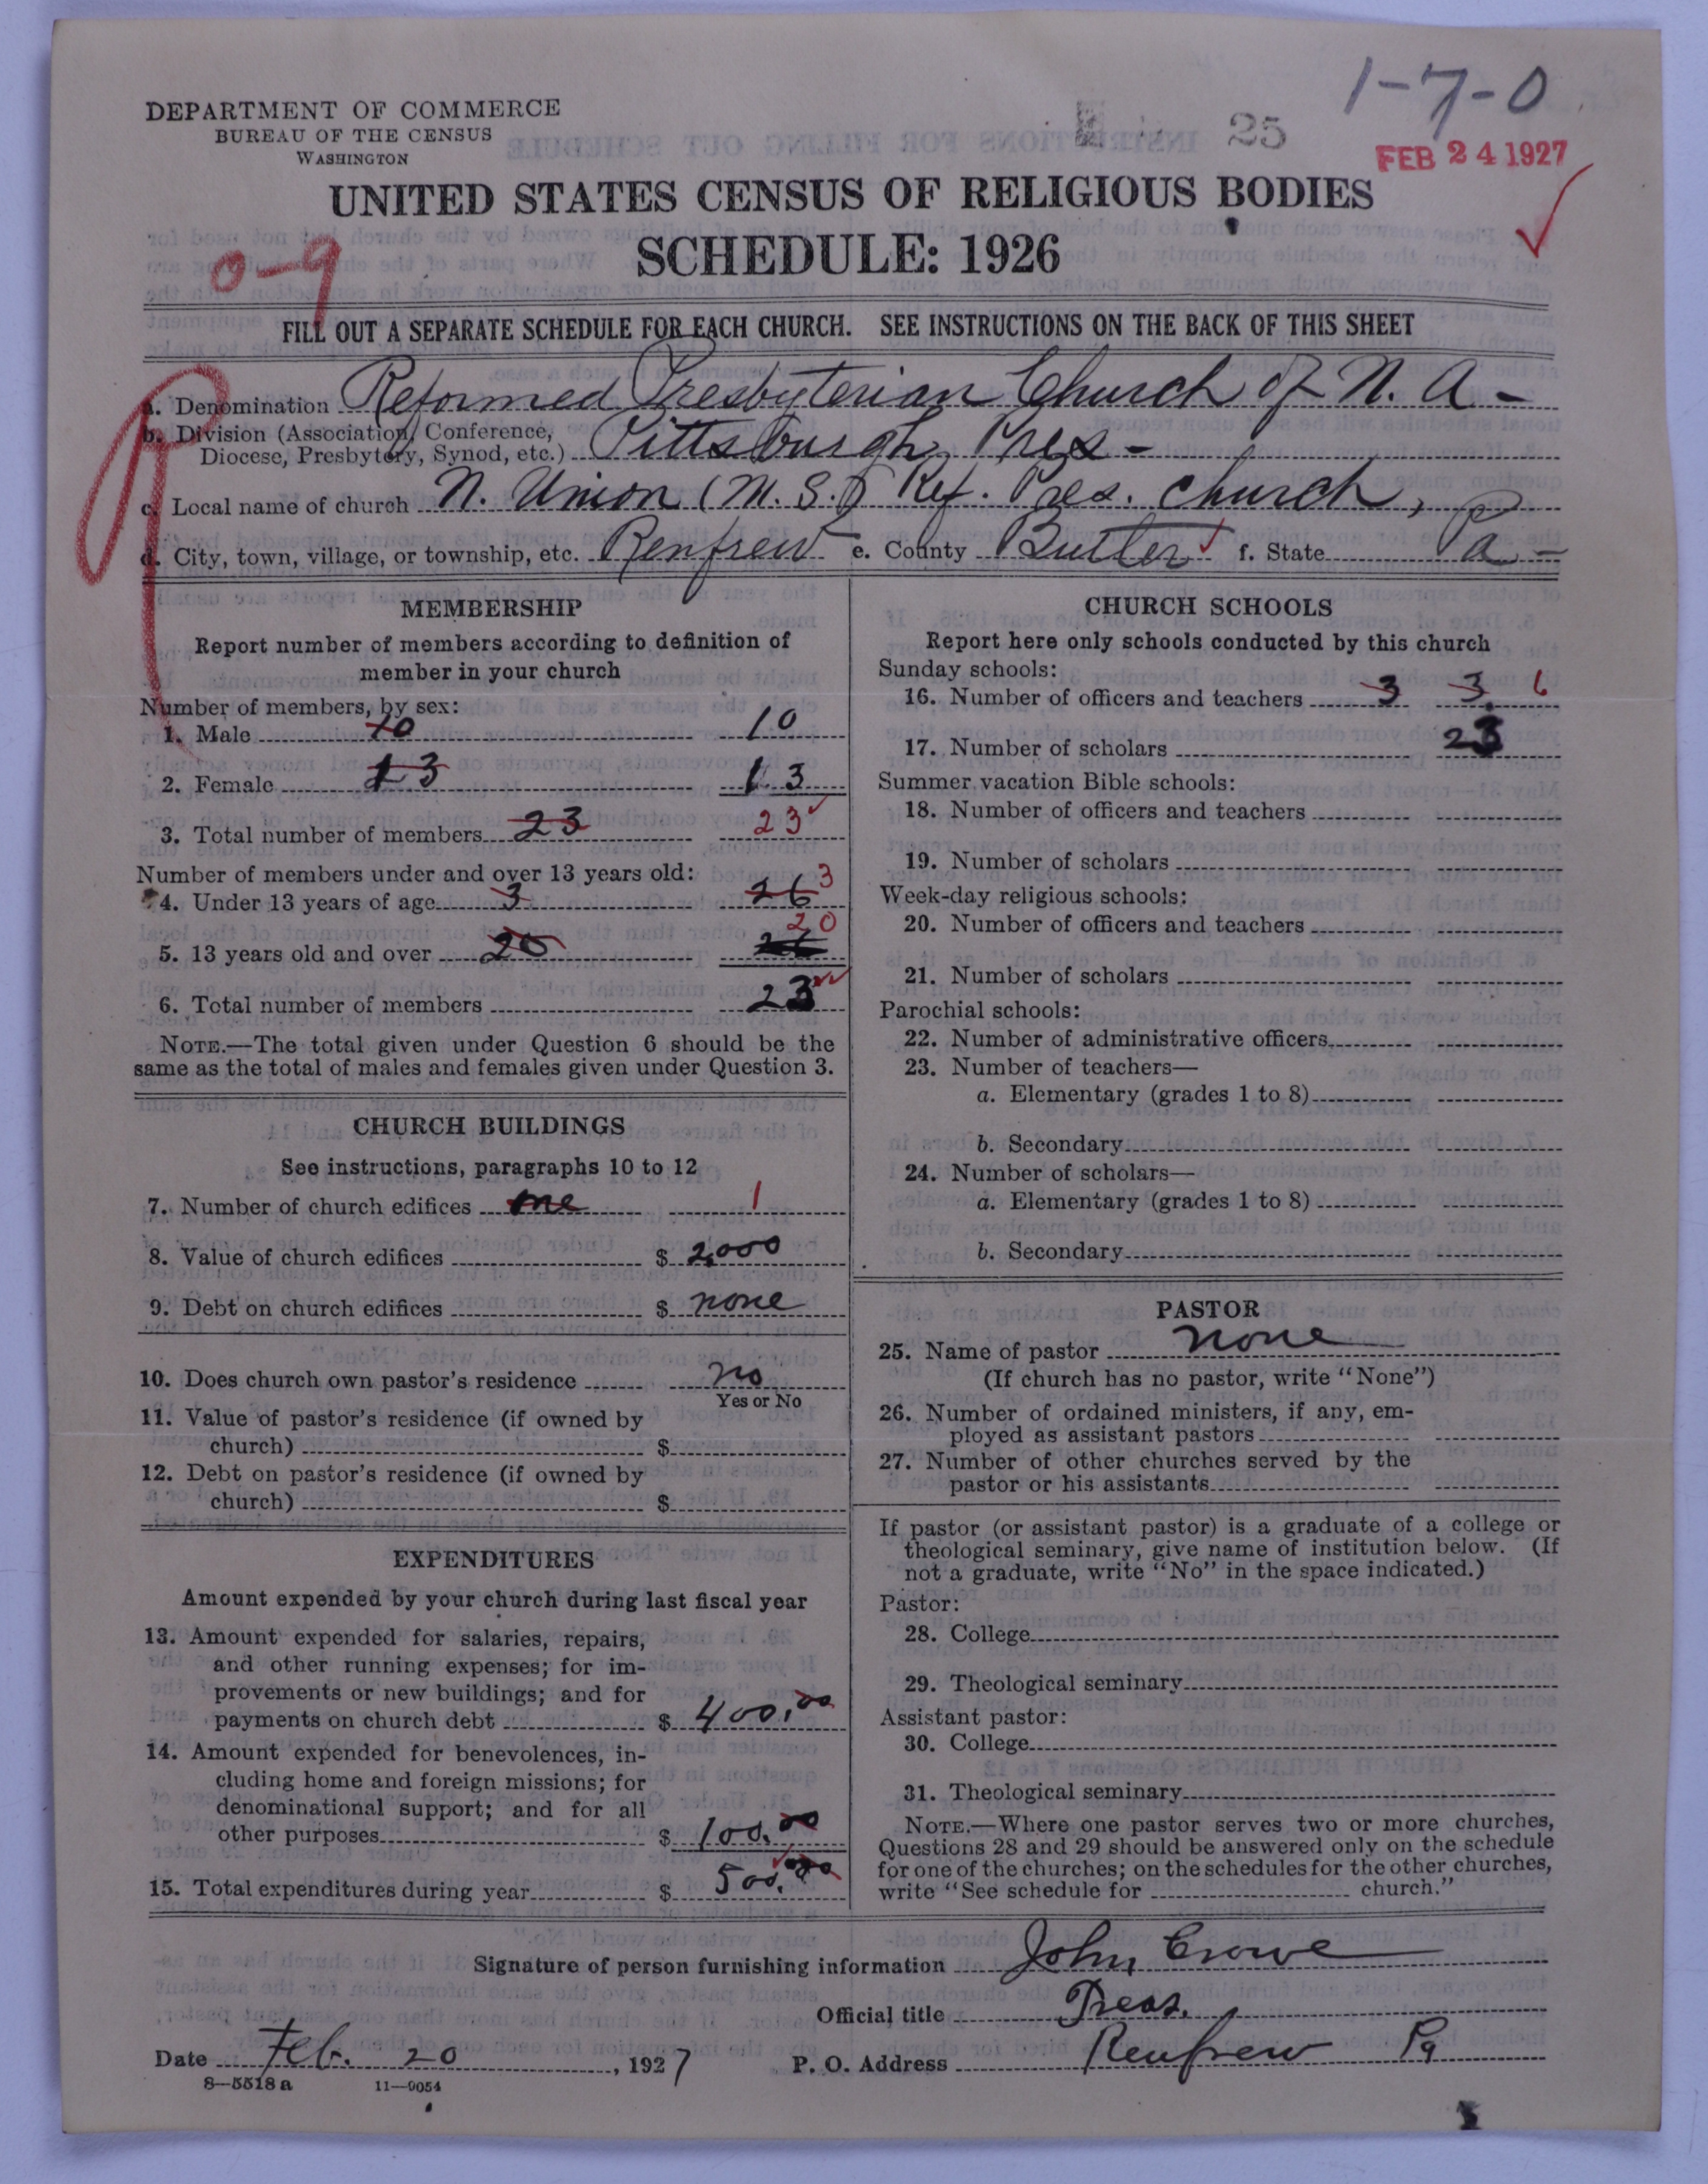 1-7-0
DEPARTMENT OF COMMERCE
BUREAU OF THE CENSUS
WASHINGTON
25
FEB 24 1927
UNITED STATES CENSUS OF RELIGIOUS BODIES
SCHEDULE: 1926
0-9
FILL OUT A SEPARATE SCHEDULE FOR EACH CHURCH. SEE INSTRUCTIONS ON THE BACK OF THIS SHEET
a. Denomination Reformed Presbyterian Church of N. A-
b. Division (Association, Conference,
Diocese, Presbytery, Synod, etc.) Pittsburgh Pres-
c. Local name of church N. Union (M. S.) Ref. Pres. Church,
d. City, town, village, or township, etc. Renfrew e. County Butler f. State Pa-
MEMBERSHIP
Report number of members according to definition of
member in your church
Number of members, by sex:
1. Male 10 10
2. Female 13 13
3. Total number of members 23 23
Number of members under and over 13 years old:
4. Under 13 years of age 3 26 3
5. 13 years old and over 20 20
6. Total number of members 23
NOTE.—The total given under Question 6 should be the
same as the total of males and females given under Question 3.
CHURCH BUILDINGS
See instructions, paragraphs 10 to 12
7. Number of church edifices one 1
8. Value of church edifices $ 2,000
9. Debt on church edifices $ none
10. Does church own pastor's residence no
Yes or No
11. Value of pastor's residence (if owned by
church) $
12. Debt on pastor's residence (if owned by
church) $
EXPENDITURES
Amount expended by your church during last fiscal year
13. Amount expended for salaries, repairs,
and other running expenses; for im-
provements or new buildings; and for
payments on church debt $ 400.00
14. Amount expended for benevolences, in-
cluding home and foreign missions; for
denominational support; and for all
other purposes $ 100.00
15. Total expenditures during year $ 500.00
CHURCH SCHOOLS
Report here only schools conducted by this church
Sunday schools:
16. Number of officers and teachers 3 3 6
17. Number of scholars 23
Summer vacation Bible schools:
18. Number of officers and teachers
19. Number of scholars
Week-day religious schools:
20. Number of officers and teachers
21. Number of scholars
Parochial schools:
22. Number of administrative officers
23. Number of teachers—
a. Elementary (grades 1 to 8)
b. Secondary
24. Number of scholars—
a. Elementary (grades 1 to 8)
b. Secondary
PASTOR
25. Name of pastor none
(If church has no pastor, write "None")
26. Number of ordained ministers, if any, em-
ployed as assistant pastors
27. Number of other churches served by the
pastor or his assistants
If pastor (or assistant pastor) is a graduate of a college or
theological seminary, give name of institution below. (If
not a graduate, write "No" in the space indicated.)
Pastor:
28. College
29. Theological seminary
Assistant pastor:
30. College
31. Theological seminary
NOTE.—Where one pastor serves two or more churches,
Questions 28 and 29 should be answered only on the schedule
for one of the churches; on the schedules for the other churches,
write "See schedule for church."
Signature of person furnishing information John Crowe
Official title Treas.
Date Feb. 20, 1927 P. O. Address Renfrew Pa
8—5518a 11—9054